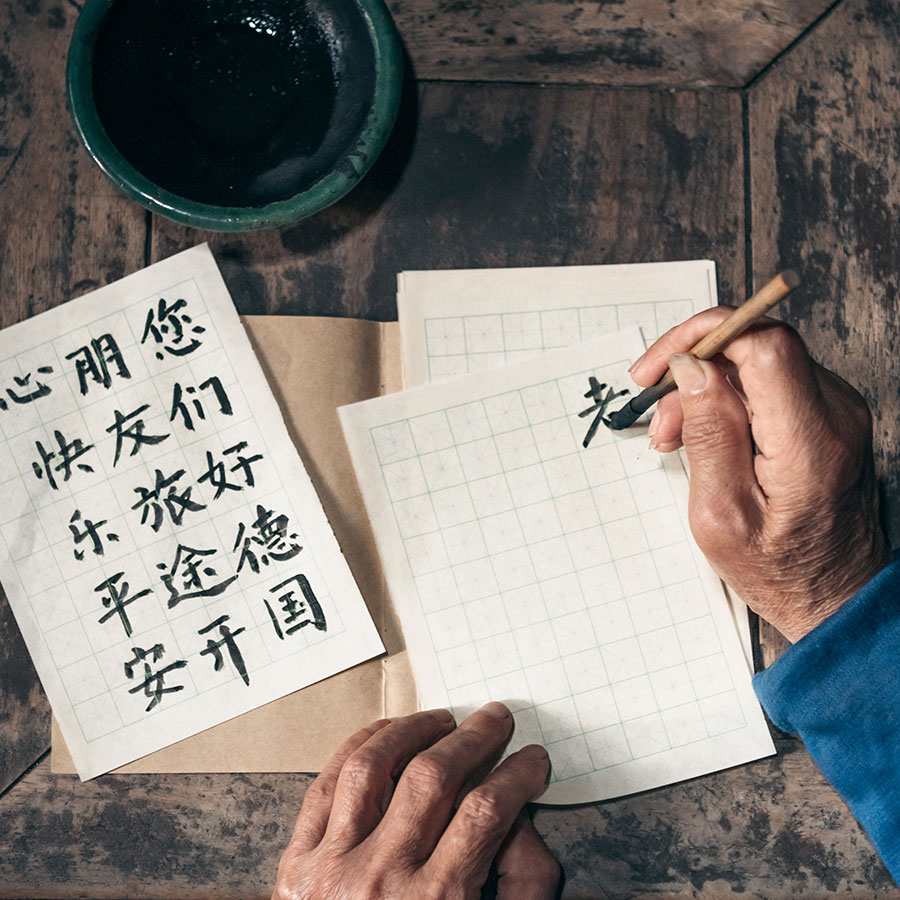 您们好德国
朋友旅途开
心快乐平安
老